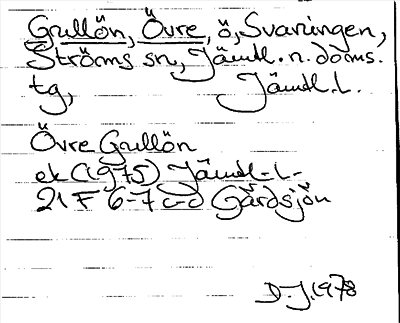 Grillön, Övre, ö, Svaningen,
Ströms sn, Jämtl. n. doms.
tg, Jämtl. l.
Övre Grillön
ek (1975) Jämtl-l-
21 F 6-7 c-d Gårdsjön
D.J. 1978